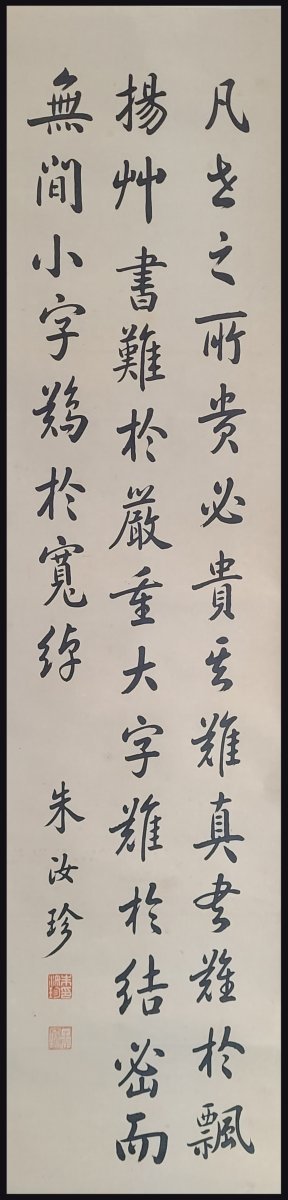 凡世之所貴必貴其難真書難於飄
揚艸書難於嚴重大字難於結密而
無間小字難於寬綽
朱汝珍